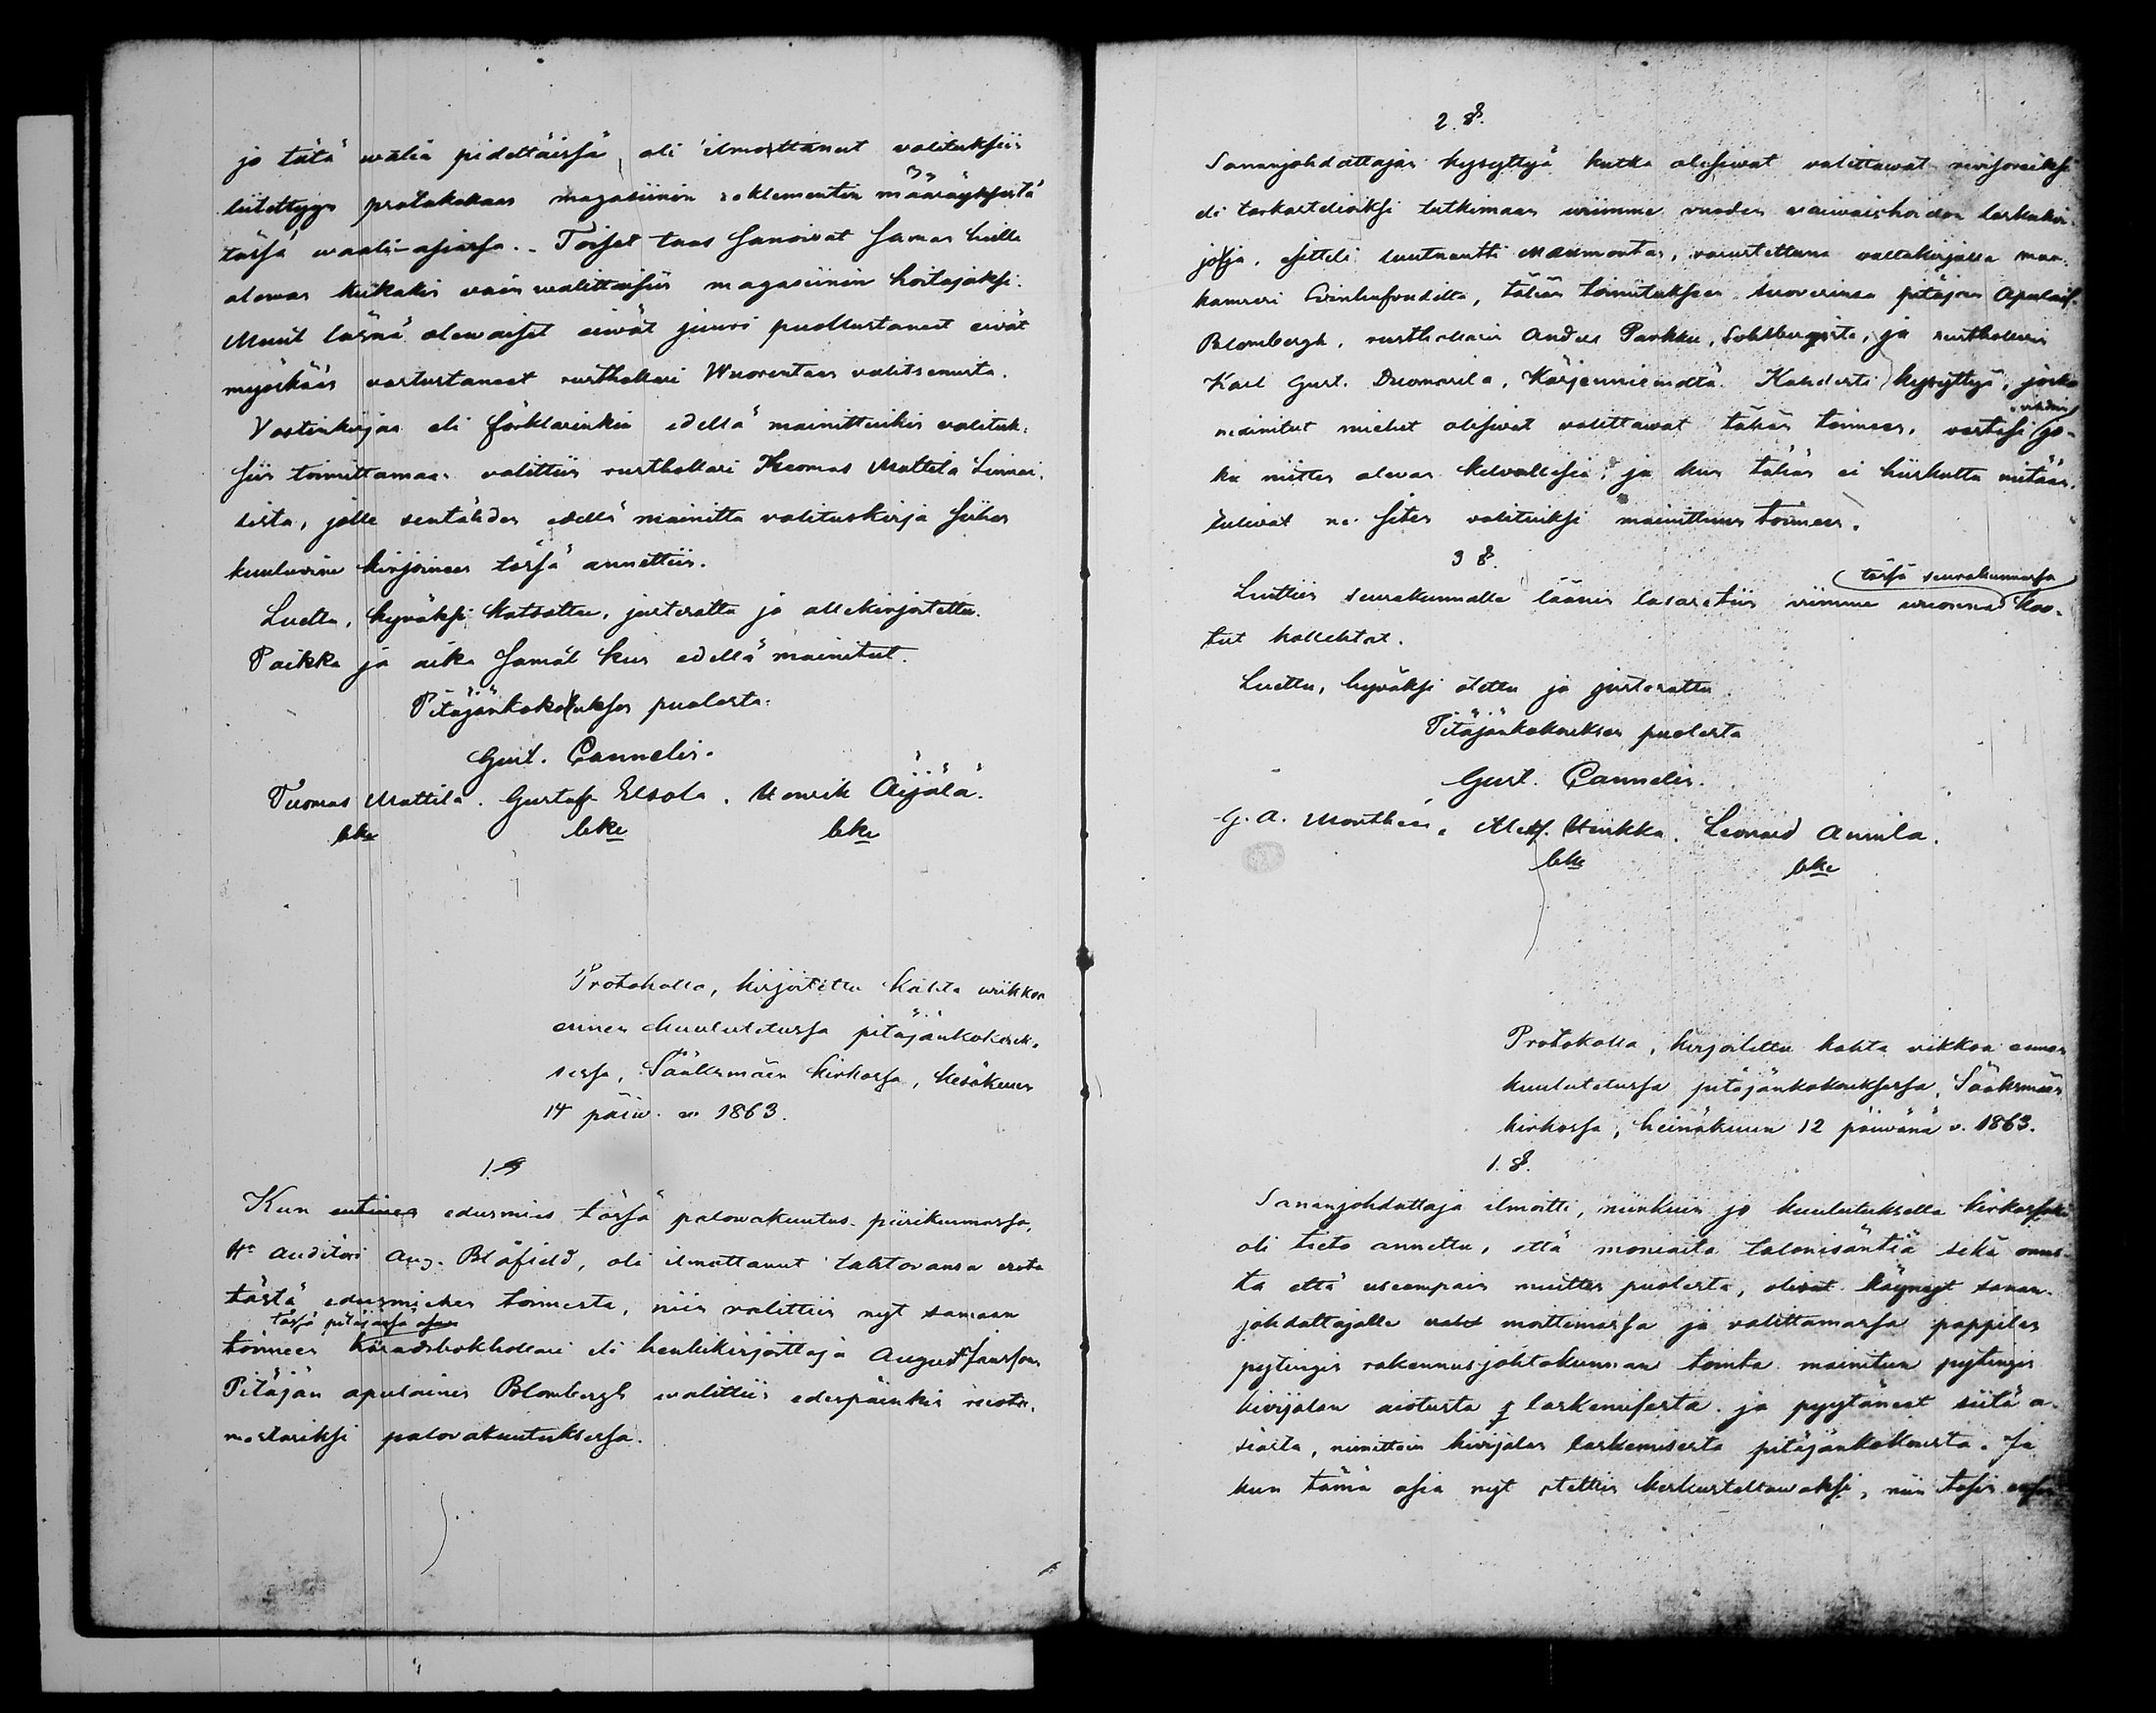 jo tätä waliа pidettäissä, oli ilmoittanut valituksiin
liitettyyn protokolaan magasiinin reklementin määräyksestä
tässä waali-asiassa. Toiset taas sanoivat saman huilla
olewan kukakin vain walittaisiin magasiinin hoitajaksi.
Muut läsnä olewaiset eiwät juuri puollustaneet eiwät
myöskään vastustaneet rusthollari Wuorentaan valitsemista.
Vastinkirjaa eli förklarinkia edellä mainittuihin valituk-
siin toimittamaan valittiin rusthollari Thuomas Mattila Linnai-
sista, jolle sentähden edellä mainittu valituskirja siihen
kuuluvine kirjoineen tässä annettiin.
Luettu, hyväksi katsottu, justerattu ja allekirjoitettu.
Paikka ja aika samat kuin edellä mainitut.
Pitäjänkokouksen puolesta.
Gust. Cannelin.
Tuomas Mattila. Gustaf Elsola. Henrik Äijälä.
bke bke bke
Protokolla, kirjoitettu kahta wiikkoa
ennen kuulutetussa pitäjänkokouk-
sessa, Sääksmäen kirkossa, kesäkuun
14 päiw. v. 1863.
1. §
Kun entinen edusmies tässä palowakuutus-piirikunnassa,
Hr Auditöri Aug. Blåfield, oli ilmoittanut tahtovansa erota
tästä edusmiehen toimesta, niin valittiin nyt samaan
tässä pitäjässä asuva
toimeen häradsbokhollari eli henkikirjoittaja August Jansson
Pitäjän apulainen Blombergh walittiin edespäinkin
mestariksi palovakuutuksessa.
2. §.
Sananjohdattajan kysyttyä kutka olisiwat valittawat revisoreiksi
eli tarkasteliaiksi tutkimaan wiimme vuoden vaivaishoidon laskukir-
joja, esitteli luutnantti Maxmontan, varustettuna valtakirjalla maa-
kamreri Svinhufvudilta, tähän toimitukseen kuoverinsa pitäjän Apulais.
Blombergh, rusthollari Anders Parkku, Sohlbergista, ja rusthollari
Karl Gust. Duomarila, Kärjenniemeltä. Kahdesti kysyttyä, josko
mainitut miehet olisivat valittawat tähän toimeen, vastasi jo-
ku niitten olevan kelvollisia; ja kun tähän ei kiirkutta mitään,
tulivat ne siten valituiksi mainittuun toimeen.
3 §.
Luettiin seurakunnalle läänin lasaretiin viimme wuonna tässä seurakunnassa koo-
tut kollehtat.
Luettu, hyväksi otettu ja justerattu
Pitäjänkokouksen puolesta
Gust. Cannelin.
G. A. Monthén. Alexf. Heikka. Leonard Annila.
bke bke
Protokolla, kirjoitettu kahta viikkoa ennen
kuulutetussa pitäjänkokouksessa, Sääksmäen
kirkossa, heinäkuun 12 päivänä v. 1863.
1. §.
Sananjohdattaja ilmoitti, niinkuin jo kuulutuksella kirkossaki
oli tieto annettu, että moniaita talonisäntiä sekä omas-
ta että useampain muitten puolesta, olivat käyneet sanan-
johdattajalle moittimassa ja valittamassa pappilan
pytingin rakennusjohtokunnan tointa mainitun pytingin
kivijalan aiotusta laskemisesta ja pyytäneet siitä a-
siasta, nimittäin kivijalan laskemisesta pitäjänkokousta. Ja
kun tämä asia nyt otettiin keskusteltawaksi, niin